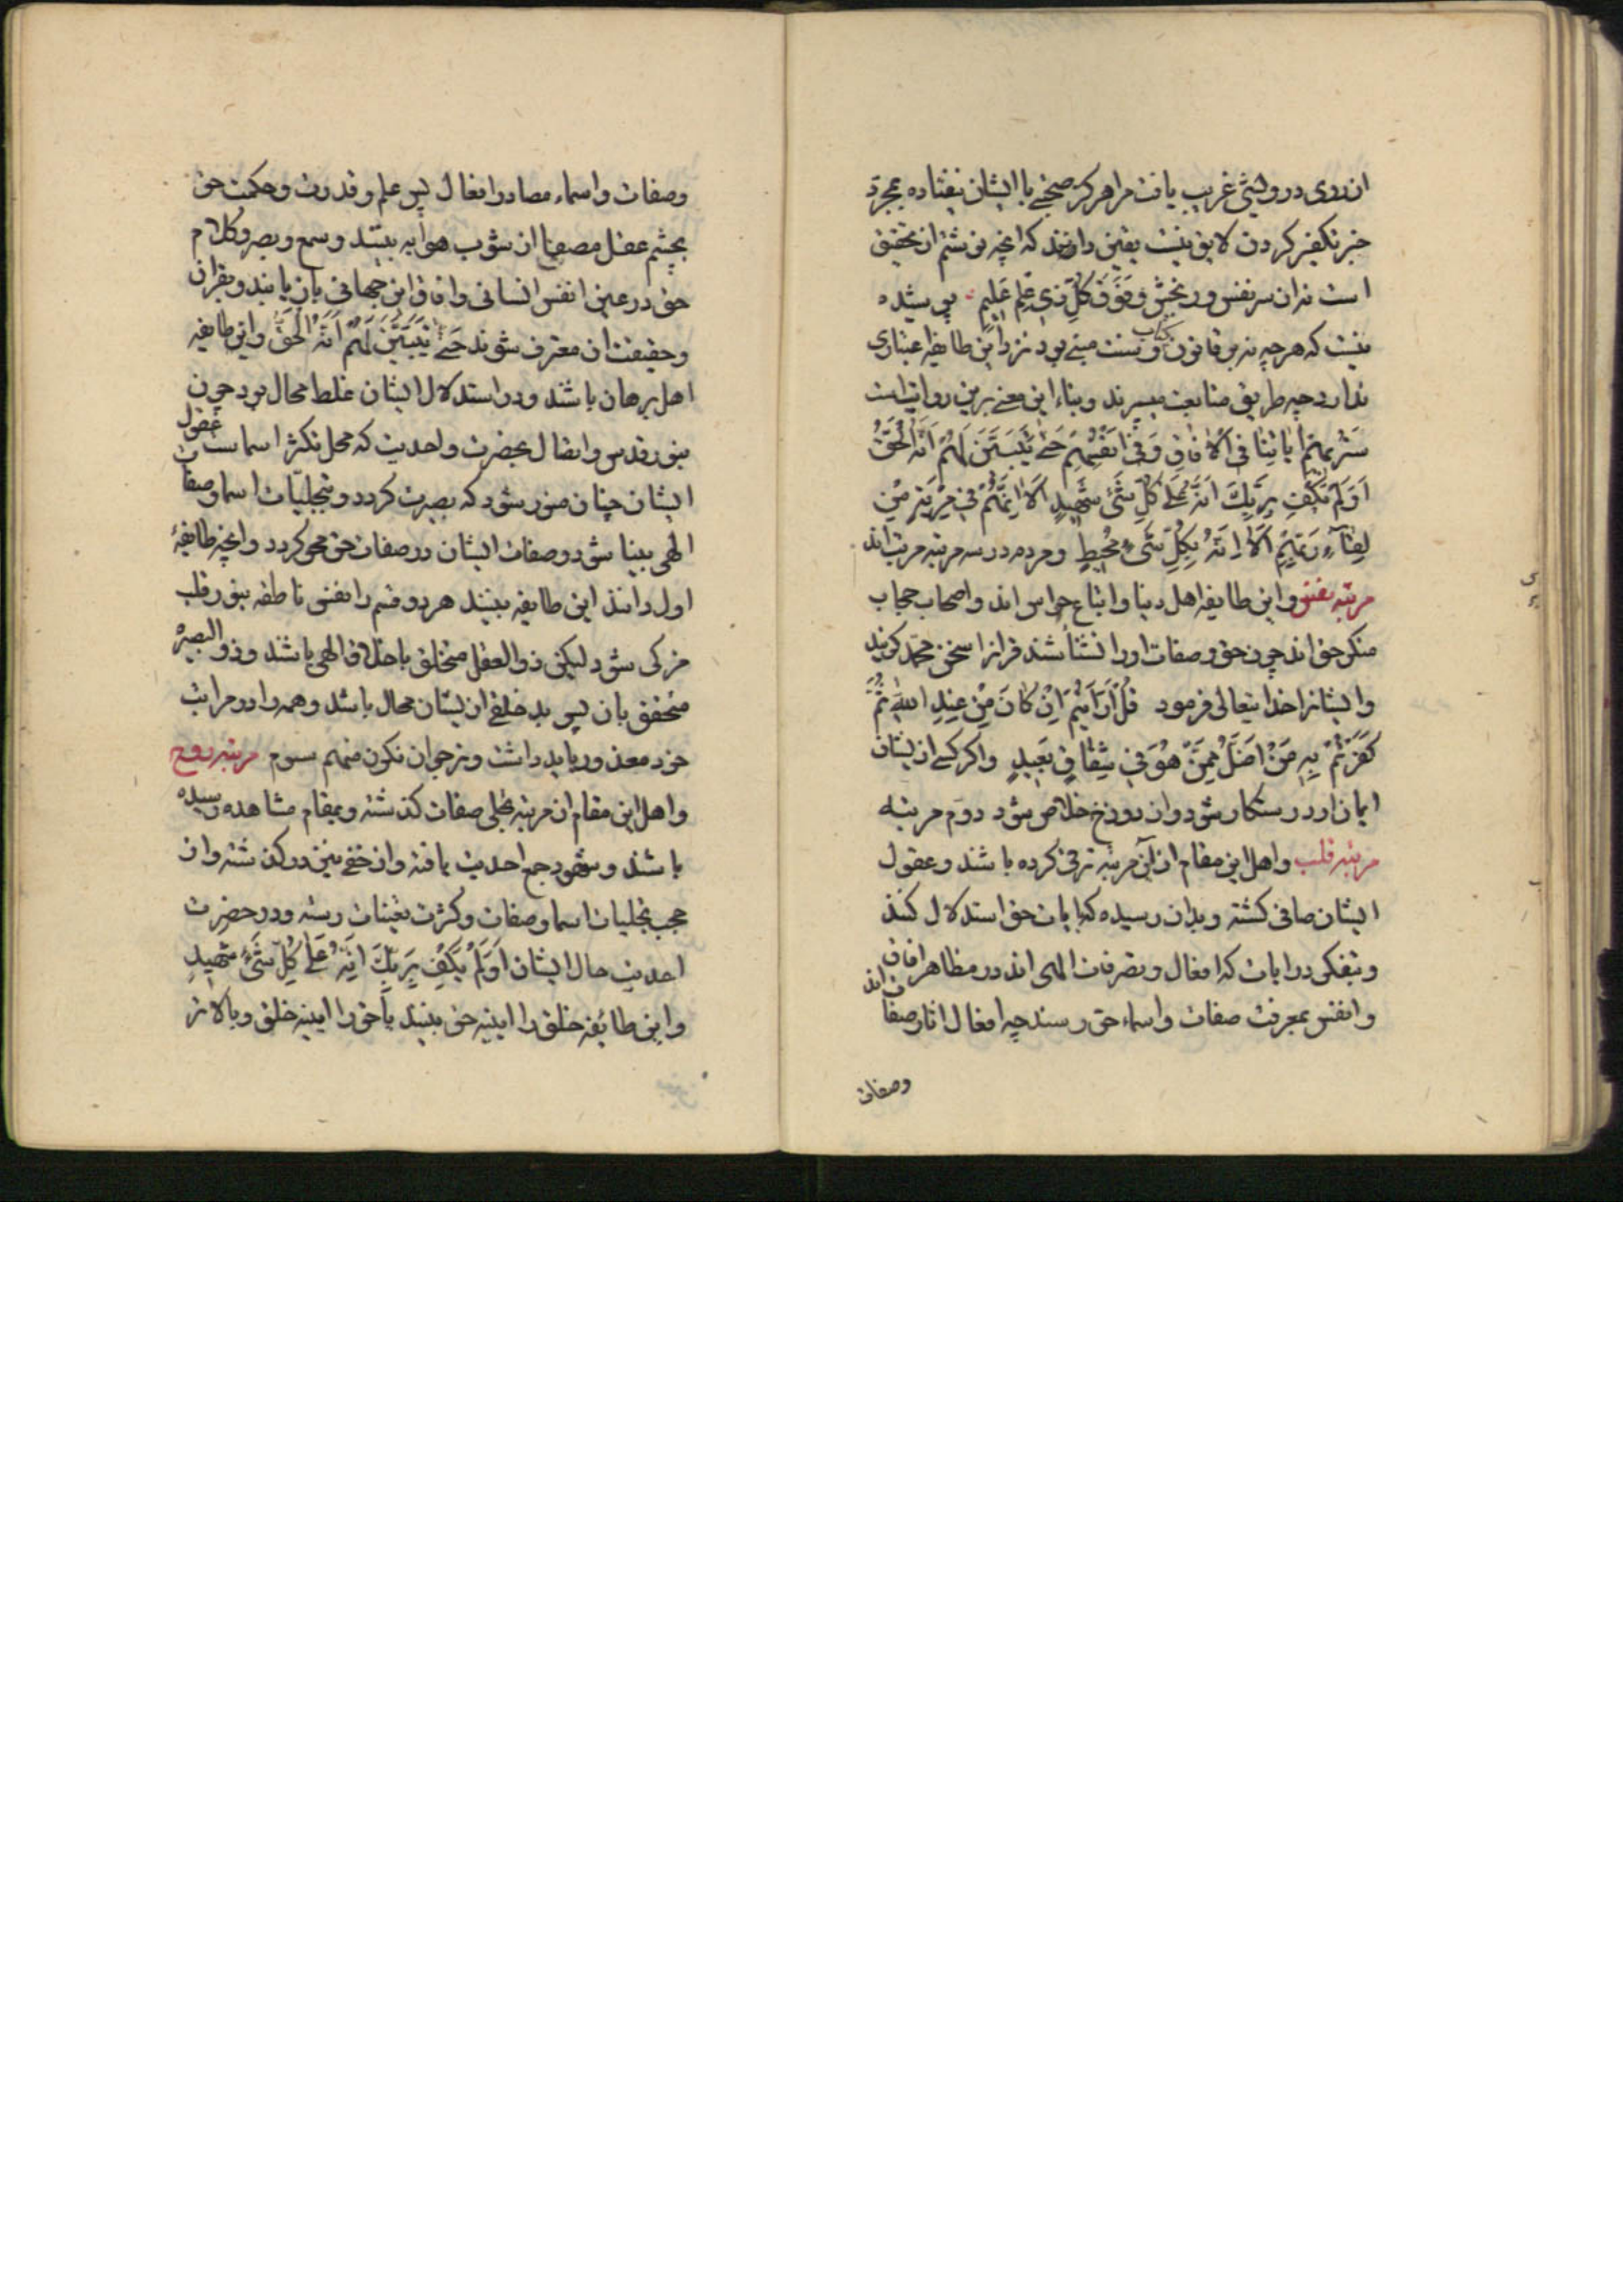 از روی درویشی غریب یافت مرا هرگز صحبتی با ایشان نیفتاده بمجرد
خبر تکفیر کردن لایق نیست یقین دانند که آنچه نوشتم از تحقیق
است نه از سر نفس و رنجش وفوق کل ذی علم علیم پوشیده
نیست که هر چه نه بر قانون کتاب و سنت مبنی بود نزد این طایفه اعتباری
ندارد چه طریق متابعت میسپرند و بناء این معنی برین دو آیتست
سنریهم آیاتنا فی الآفاق وفی انفسهم حتی یتبین لهم انه الحق
اولم یکف بربک انه علی کل شیء شهید الا انهم فی مریة من
لقاء ربهم الا انه بکل شیء محیط و مردم در سه مرتبه مرتب‌اند
مرتبه نفس و این طایفه اهل دنیا و اتباع حواس اند و اصحاب حجاب
منکر حق اند چون حق و صفات او را نشناسند قرآن را سخن محمد گویند
و ایشانرا خدایتعالی فرمود قل ارأیتم ان کان من عند الله ثم
کفرتم به من اضل ممن هو فی شقاق بعید و اگر کسی از یشان
ایمان آرد رستگار شود و از دوزخ خلاص شود دوم مرتبه
مرتبه قلب و اهل این مقام از آن مرتبه ترقی کرده باشند و عقول
ایشان صافی گشته و بدان رسیده که بایات حق استدلال کنند
و بتفکر در آیات که افعال و تصرفات الهی اند در مظاهر آفاق
و انفس بمعرفت صفات و اسماء حق رسند چه افعال آثار صفات اند
وصفات
وصفات و اسماء مصادر افعال پس علم و قدرت و حکمت حق
بچشم عقل مصفا از شوب هوا به بینند و سمع و بصر و کلام
حق در عین انفس انسانی و آفاق این جهانی باز یابند و بقرآن
و حقیقت آن معترف شوند حتی یتبین لهم انه الحق و این طایفه
اهل برهان باشند و در استدلال ایشان غلط محال بود چون
بنور قدس و اتصال بحضرت واحدیت که محل تکثر اسماست عقول
ایشان چنان منور شود که بصیرت گردد و بتجلیات اسما و صفات
الهی بینا شود و صفات ایشان در صفات حق محو گردد و آنچه طایفه
اول دانند این طایفه بینند هر دو قسم را نفس ناطقه بنور قلب
مزکی شود لیکن ذو العقل متخلق باخلاق الهی باشند و ذو البصیره
متحقق بان پس بد خلقی از یشان محال باشد و همه را در مراتب
خود معذور باید داشت و نرجو ان نکون منهم سوم مرتبه روح
و اهل این مقام از مرتبه تجلی صفات گذشته و بمقام مشاهده رسیده
باشند و شهود جمع احدیت یافته و از خفی نیز در گذشته و از
حجب تجلیات اسما و صفات و کثرت تعینات رسته و در حضرت
احدیت حال ایشان اولم یکف بربک انه علی کل شیء شهید
و این طایفه خلق را آینه حق بینند یا حق را آینه خلق و بالاتر